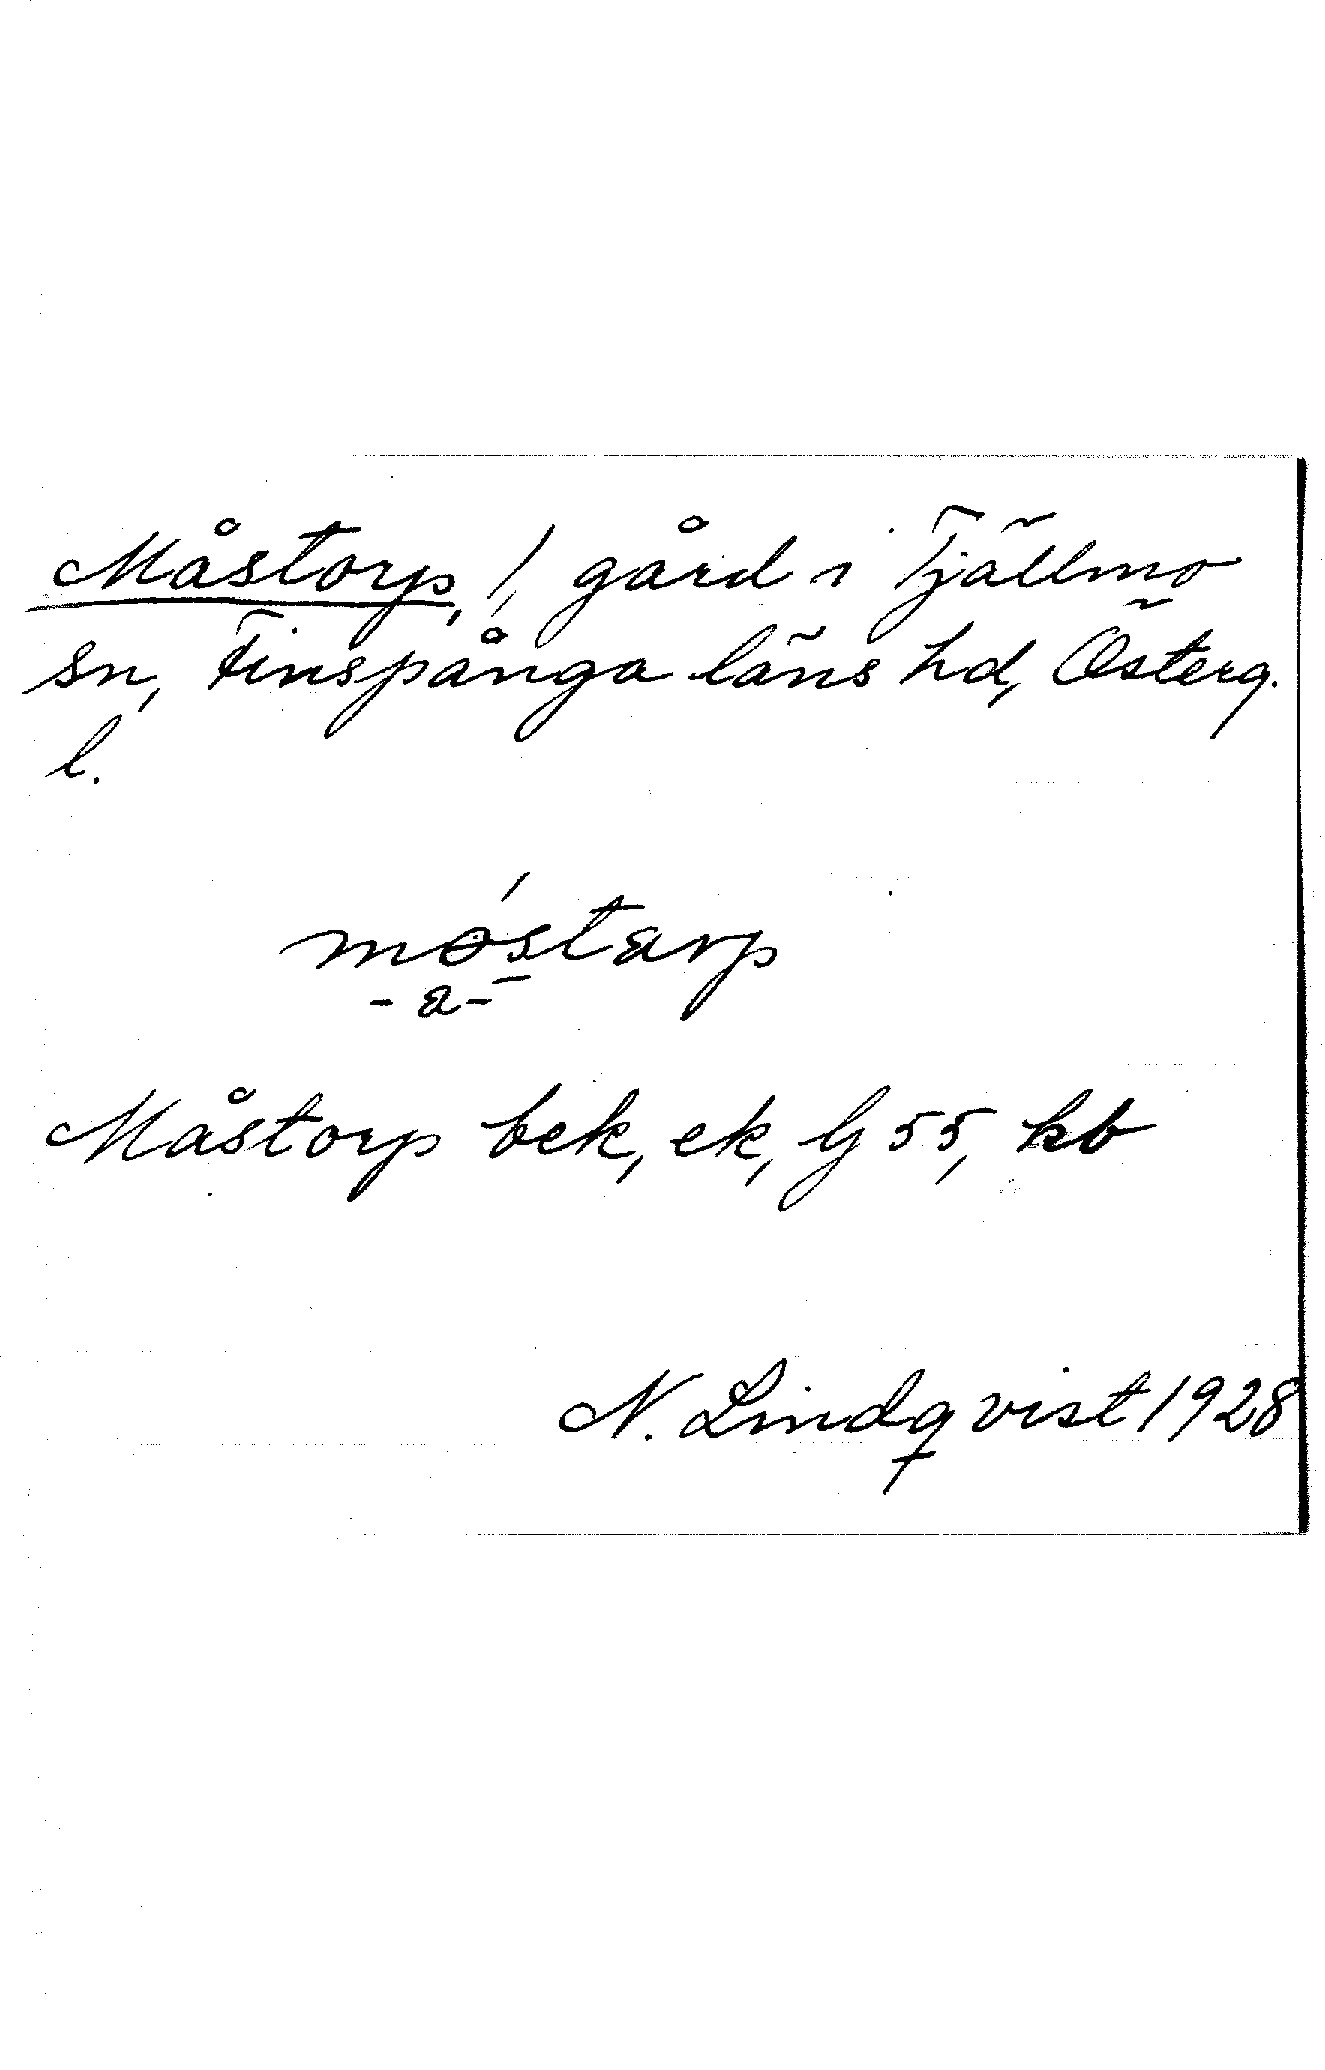 Måstorp, /, gård i Tjällmo
sn, Finspånga läns hd, Österg.
l.
móstarp
-a-
Måstorp bek, ek, G 55, kb
N. Lindqvist 1928